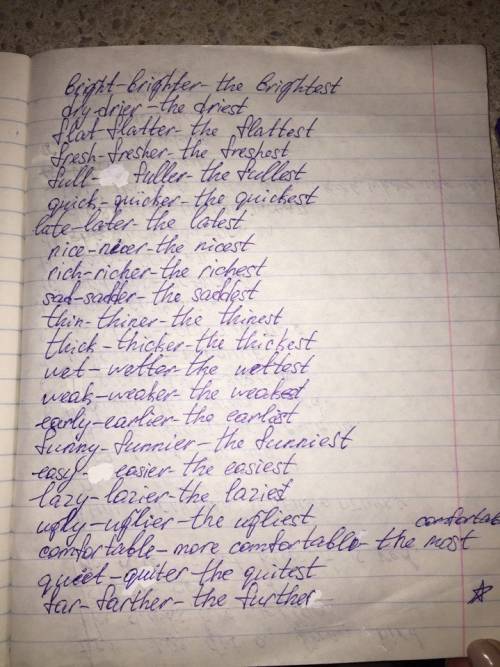 bright-brighter-the brightest
dry-drier-the driest
flat-flatter-the flattest
fresh-fresher-the freshest
full- fuller-the fullest
quick-quicker-the quickest
late-later-the latest
nice-nicer-the nicest
rich-richer-the richest
sad-sadder-the saddest
thin-thiner-the thinest
thick-thicker-the thickest
wet-wetter-the wettest
weak-weaker-the weakest
early-earlier-the earliest
funny-funnier-the funniest
easy- easier-the easiest
lazy-lazier-the laziest
ugly-uglier-the ugliest
comfortable-more comfortable-the most comfortab
quiet-quiter the quitest
far-farther-the further